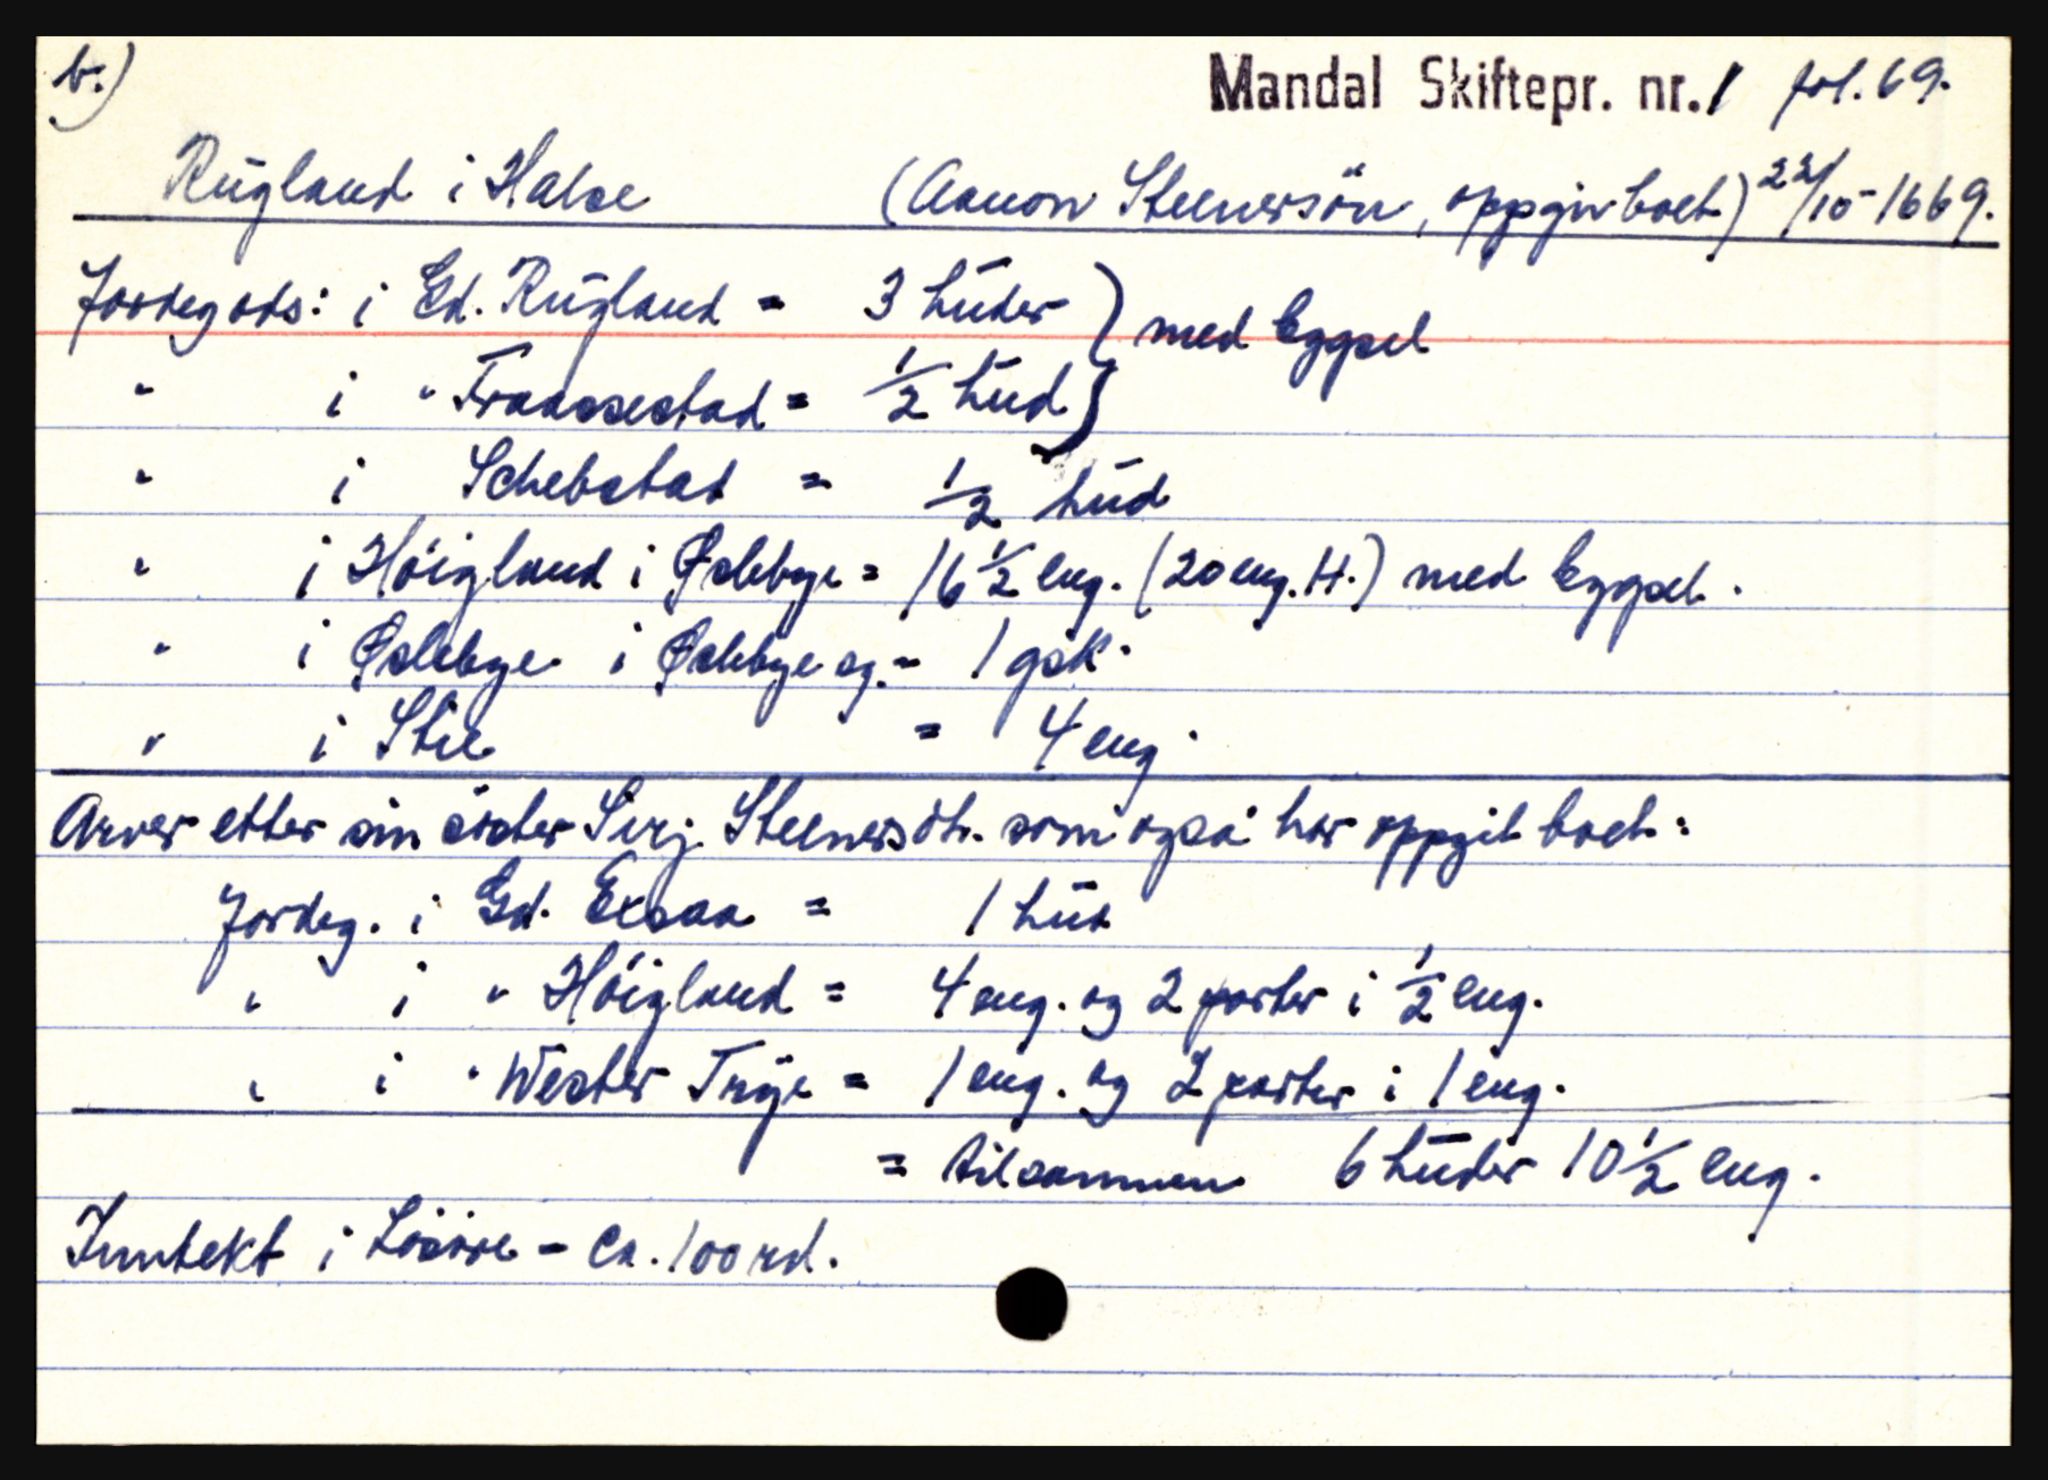 b.)
Mandal Skiftepr. nr. 1 fol. 69.
Rügland i Halse (Aanon Steenersön, oppgir boet) 22/10-1669.
Jordegods: i Gd. Rügland = 3 hüder } med bygsel
" i " Fraassestad = 1/2 hüd }
" i Schebstad = 1/2 hüd
" i Höigland i Øslebye = 16 1/2 eng. (20 eng. H.) med bygsel.
" i Øslebye i Øslebye sg. - 1 gsk.
" i Stie = 4 eng.
Arver etter sin söster Sirj. Steenersdtr. som også har oppgit boet:
Jordeg. i Gd. Exsaa = 1 hüd
" i " Höigland = 4 eng. og 2 parter i 1/2 eng.
" i " Wester Trÿe = 1 eng. og 2 parter i 1 eng.
= tilsammen 6 hüder 10 1/2 eng.
Inntekt i Lösöre - ca. 100 rd.